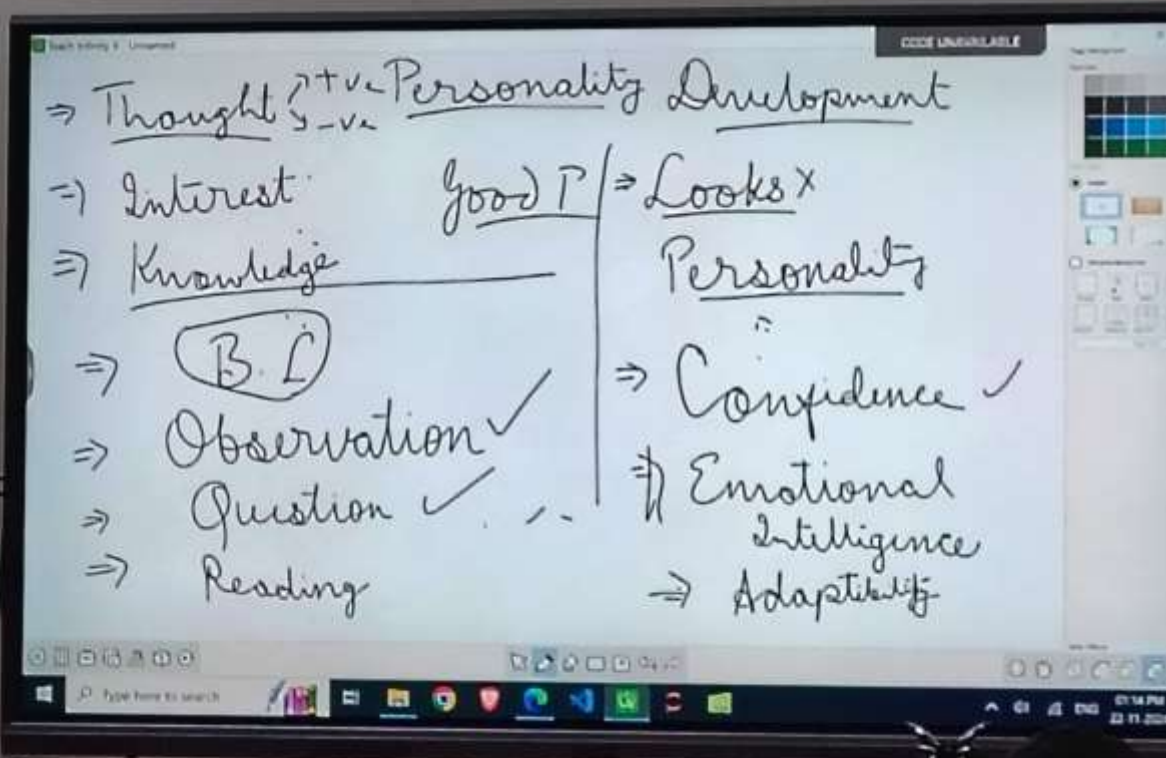 Teach Infinity X Unnamed
CODE UNAVAILABLE
⇒ Thought +ve Personality Development
-ve
⇒ Interest
Good P
⇒ Knowledge
⇒ B.L
⇒ Observation ✓
⇒ Question ✓
⇒ Reading
⇒ Looks ×
Personality
⇒ Confidence ✓
⇒ Emotional
Intelligence
⇒ Adaptibility
Type here to search
ENG
01:14 PM